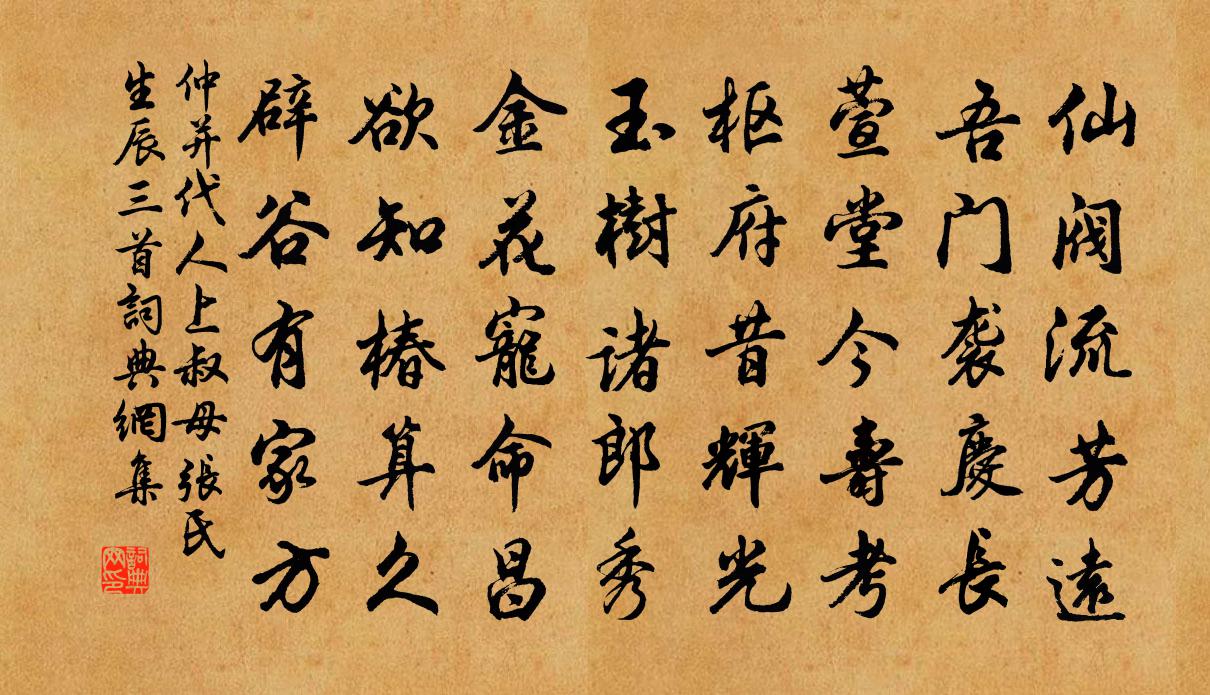 仙阀流芳远
吾门袭庆长
萱堂今寿考
枢府昔辉光
玉树诸郎秀
金花宠命昌
欲知椿算久
辟谷有家方
仲并代人上叔母张氏
生辰三首詞典網集
詞典
网印